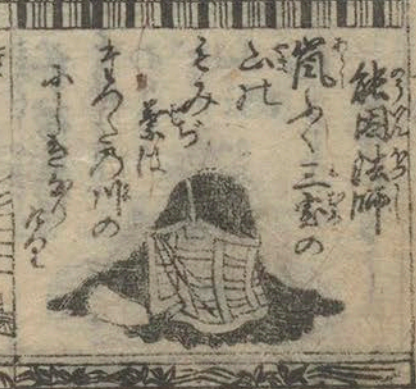 能因法師
嵐ふく三室の
山の
もみぢ
葉は
たつたの川の
にしきなりけり